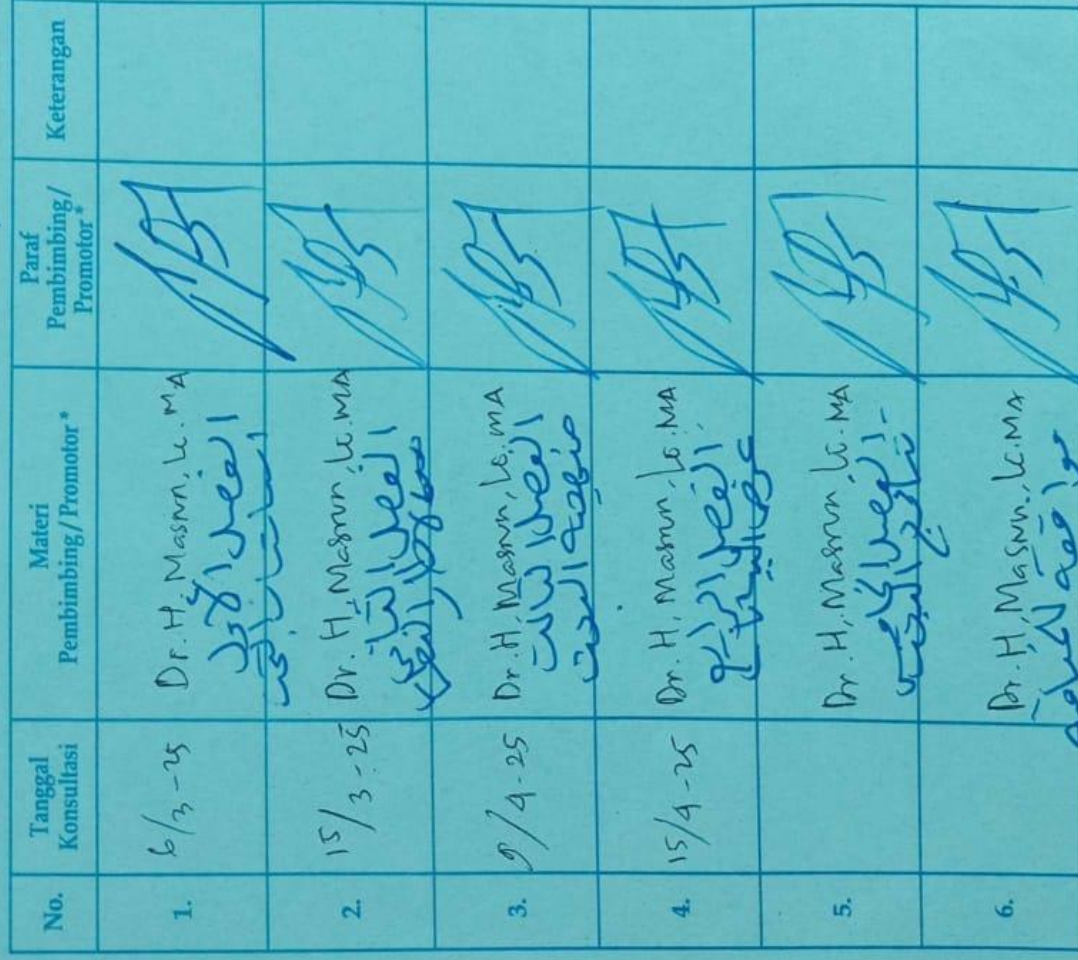 No.
Tanggal
Konsultasi
Materi
Pembimbing/Promotor *
Paraf
Pembimbing/
Promotor *
Keterangan
1.
6/3-25
Dr. H. Masrun, Lc. MA
الفصل الأول
أساسيات البحث
2.
15/3-25
Dr. H, Masrun, Lc. MA
الفصل الثاني
النظري
3.
9/4-25
Dr. H, Masrun, Lc. MA
الفصل الثالث
منهجية البحث
4.
15/4-25
Dr. H, Masrun, Lc. MA
الفصل الرابع
عرض البيانات
5.
Dr. H, Masrun, Lc. MA
الفصل الخامس
نتائج البحث
6.
Dr. H, Masrun, Lc. MA
موافقة